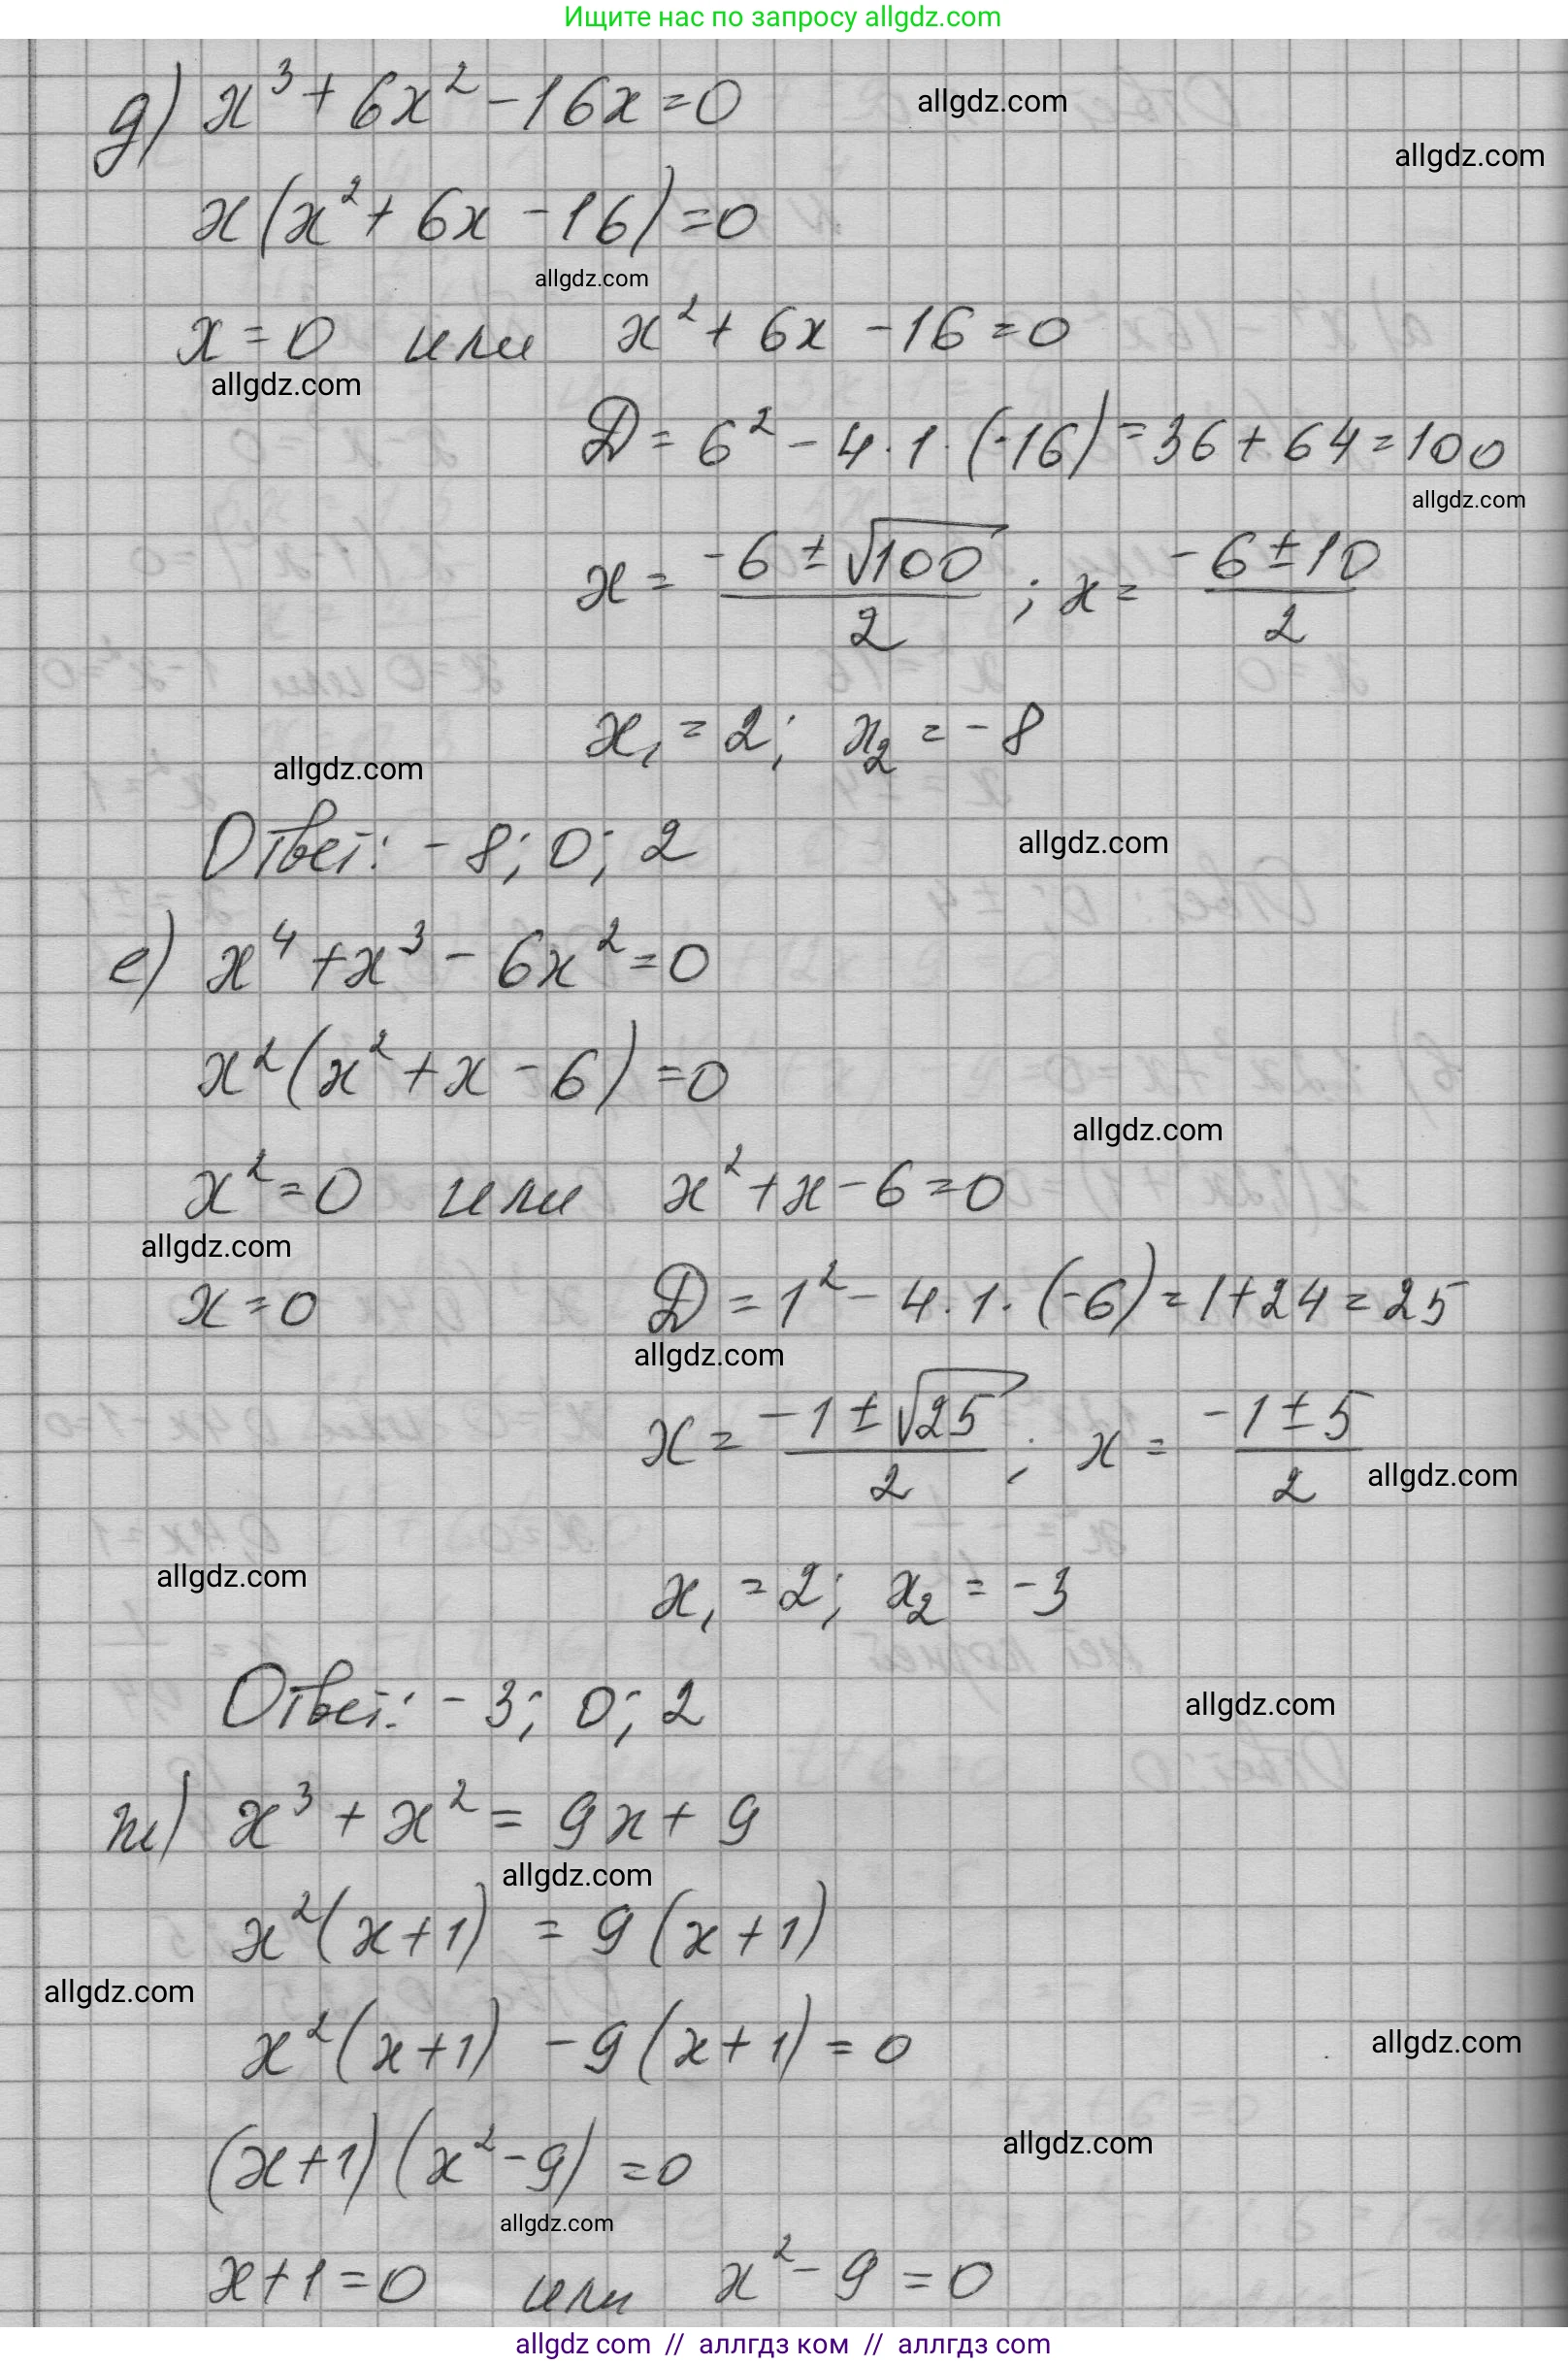 Ищите нас по запросу allgdz.com
д) x³ + 6x² - 16x = 0
allgdz.com
allgdz.com
x(x² + 6x - 16) = 0
allgdz.com
x = 0 или x² + 6x - 16 = 0
allgdz.com
D = 6² - 4·1·(-16) = 36 + 64 = 100
allgdz.com
x = (-6 ± √100)/2 ; x = (-6 ± 10)/2
x₁ = 2; x₂ = -8
allgdz.com
Ответ: -8; 0; 2
allgdz.com
е) x⁴ + x³ - 6x² = 0
x²(x² + x - 6) = 0
allgdz.com
x² = 0 или x² + x - 6 = 0
allgdz.com
x = 0 D = 1² - 4·1·(-6) = 1 + 24 = 25
allgdz.com
x = (-1 ± √25)/2 ; x = (-1 ± 5)/2
allgdz.com
allgdz.com
x₁ = 2; x₂ = -3
Ответ: -3; 0; 2
allgdz.com
ж) x³ + x² = 9x + 9
allgdz.com
x²(x+1) = 9(x+1)
allgdz.com
x²(x+1) - 9(x+1) = 0
allgdz.com
(x+1)(x² - 9) = 0
allgdz.com
allgdz.com
x + 1 = 0 или x² - 9 = 0
allgdz.com // аллгдз ком // аллгдз com